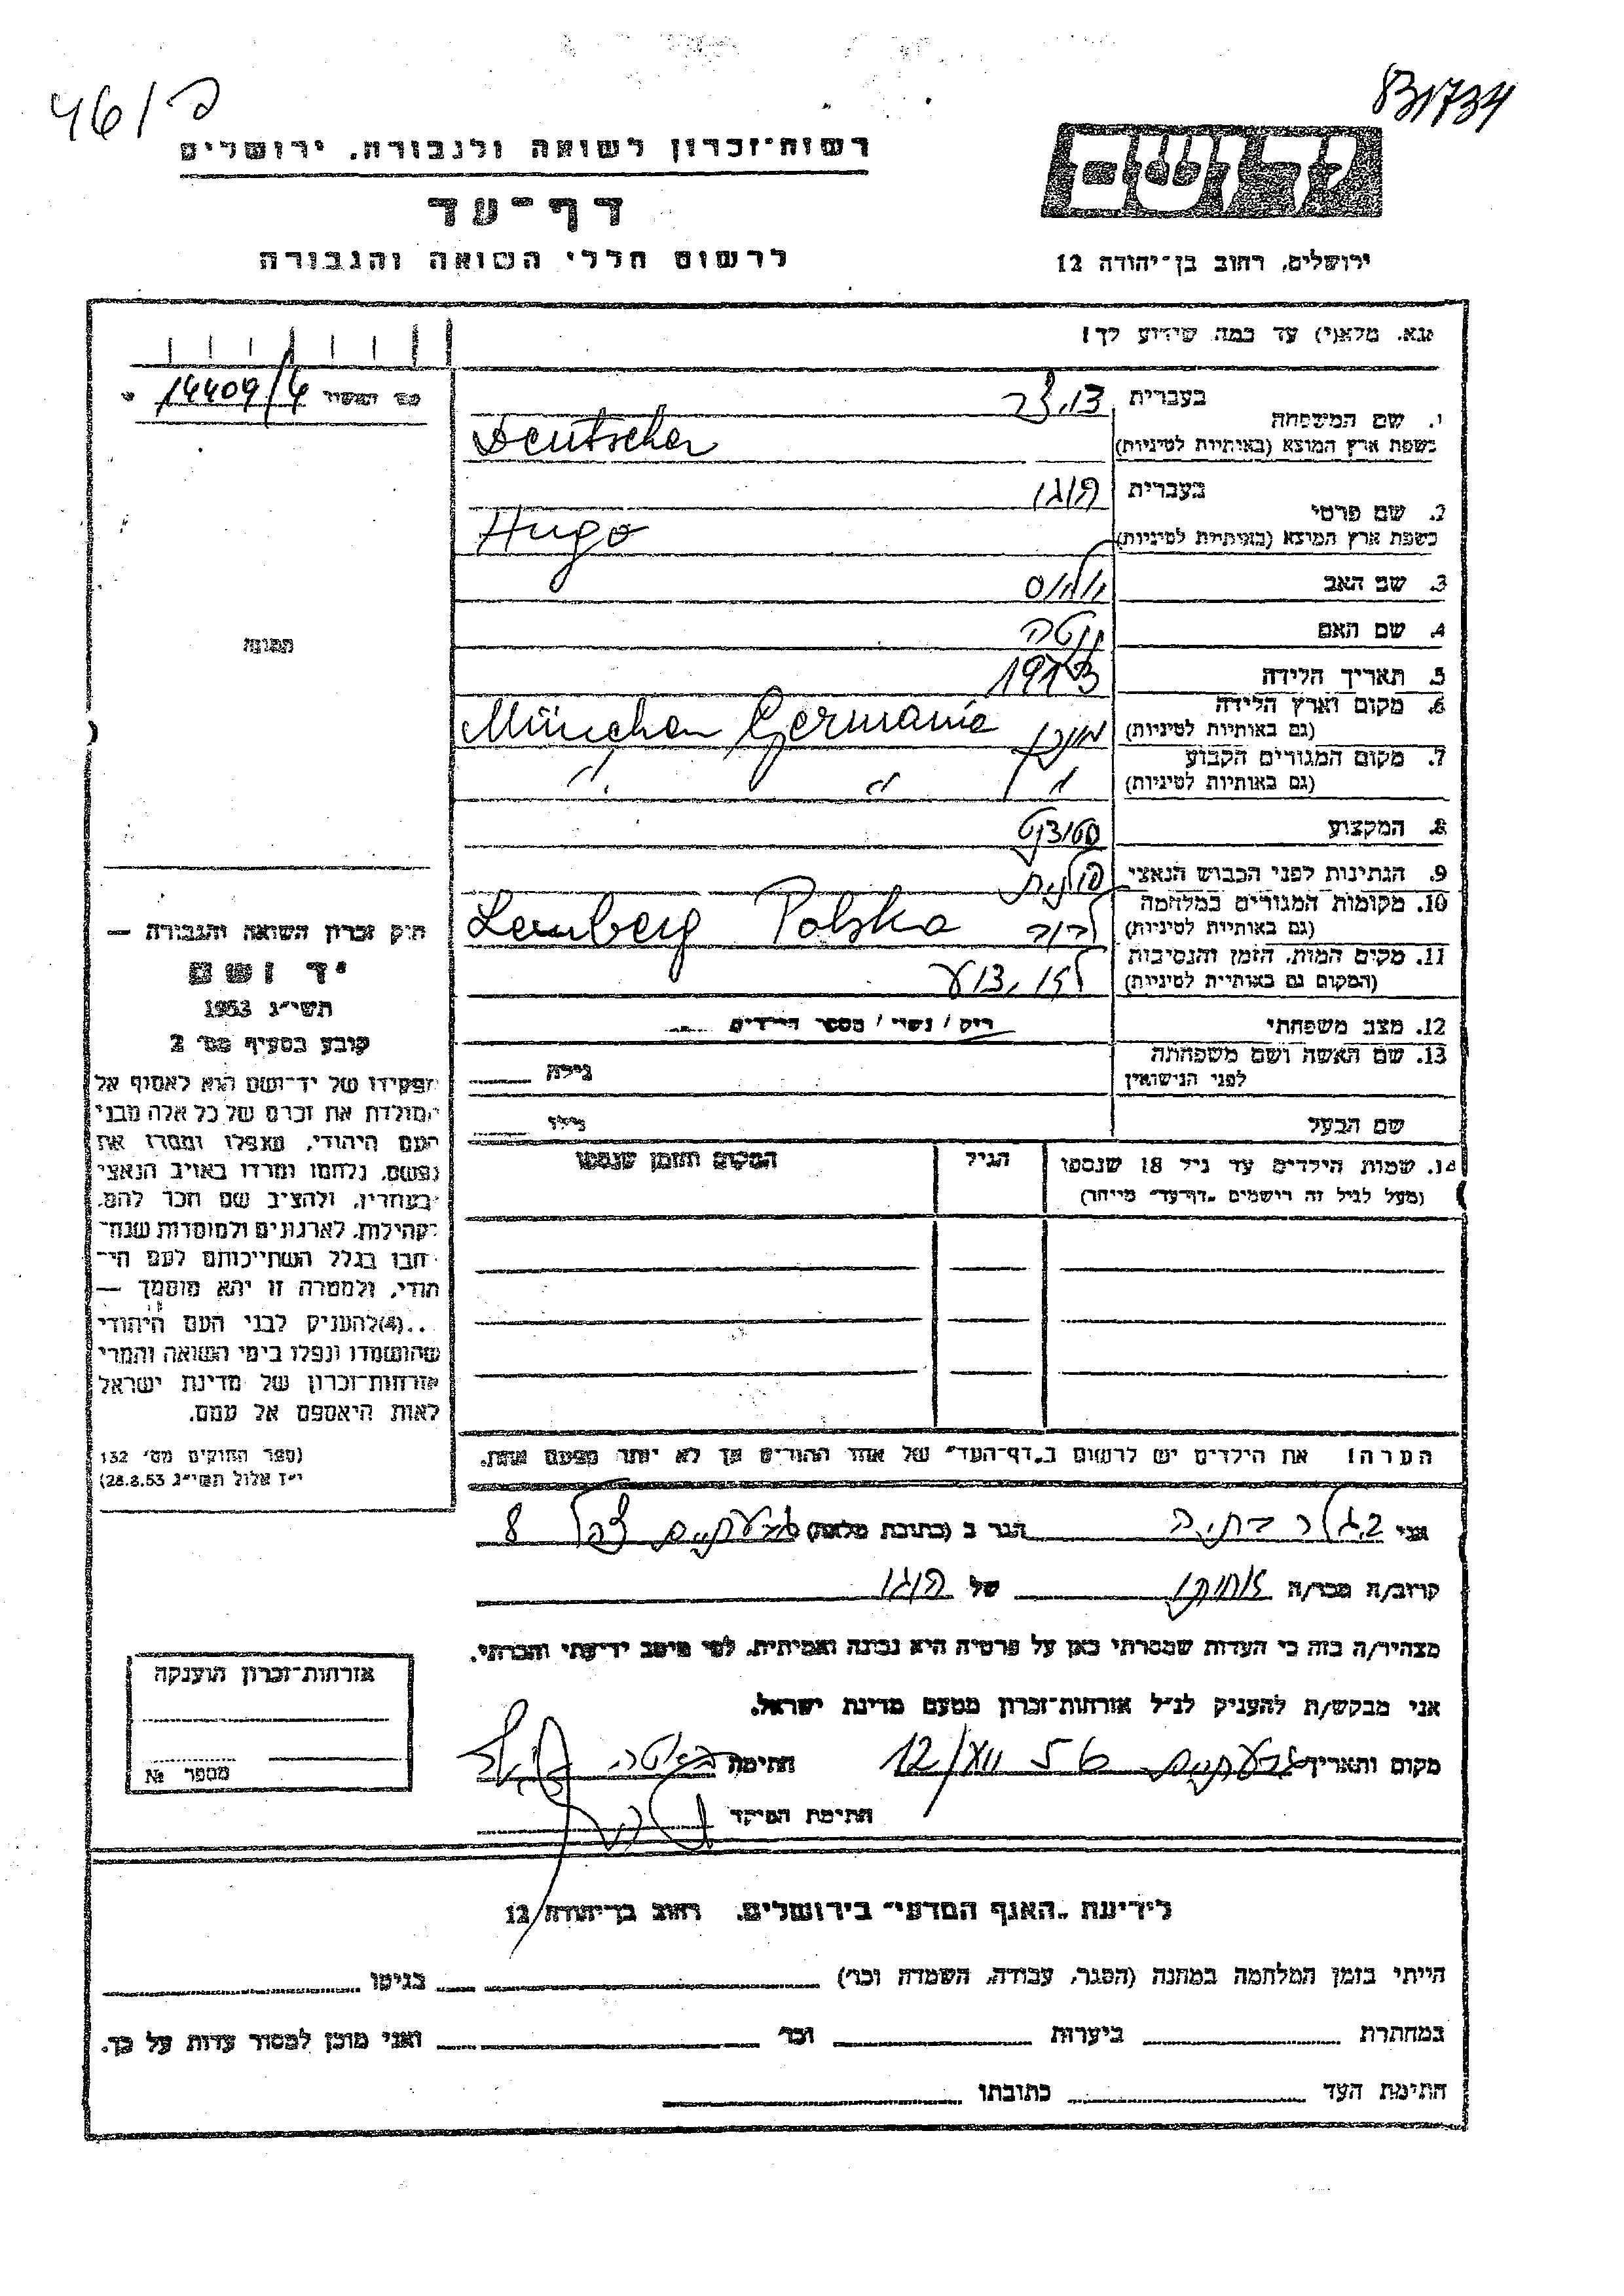 46/פ
B1734
רשות־זכרון לשואה ולגבורה. ירושלים
דף־עד
לרשום חללי השואה והגבורה
ירושלים, רחוב בן־יהודה 12
נא. מלא(י) עד כמה שידוע לך!
14409/4
1. שם המשפחה
בעברית
כשפת ארץ המוצא (באותיות לטיניות)
Deutscher
2. שם פרטי
בעברית הוגו
כשפת ארץ המוצא (באותיות לטיניות)
Hugo
3. שם האב
4. שם האם
5. תאריך הלידה
6. מקום וארץ הלידה
(גם באותיות לטיניות) מינכן München Germanie
7. מקום המגורים הקבוע
(גם באותיות לטיניות) " " " "
8. המקצוע סטודנט
9. הנתינות לפני הכבוש הנאצי פולנית
10. מקומות המגורים במלחמה
(גם באותיות לטיניות) לבוב Lemberg Polska
11. מקום המות, הזמן והנסיבות
(המקום גם באותיות לטיניות) לא ידוע
12. מצב משפחתי רוק / נשוי / מספר הילדים
13. שם האשה ושם משפחתה
לפני הנישואין
גילה
שם הבעל גילו
14. שמות הילדים עד גיל 18 שנספו הגיל המקום והזמן שנספו
(מעל לגיל זה רושמים "דף־עד" מיוחד)
הערה! את הילדים יש לרשום ב"דף־העד" של אחד ההורים אך לא יותר מפעם אחת.
תמונה
חוק זכרון השואה והגבורה —
יד ושם
תשי"ג 1953
קובע בסעיף מס׳ 2
תפקידו של יד־ושם הוא לאסוף אל
המולדת את זכרם של כל אלה מבני
העם היהודי, שנפלו ומסרו את
נפשם, נלחמו ומרדו באויב הנאצי
ובעוזריו, ולהציב שם וזכר להם,
לקהילות, לארגונים ולמוסדות שנח־
רבו בגלל השתייכותם לעם הי־
הודי, ולמטרה זו יהא מוסמך —
...(4) להעניק לבני העם היהודי
שהושמדו ונפלו בימי השואה והמרי
אזרחות־זכרון של מדינת ישראל
לאות היאספם אל עמם.
(ספר החוקים מס׳ 132
י"ז אלול תשי"ג 28.8.53)
אני הגר ב (כתובת מלאה) 8
קרוב/ה מכר/ה של הוגו
מצהיר/ה בזה כי העדות שמסרתי כאן על פרטיה היא נכונה ואמיתית, לפי מיטב ידיעתי והכרתי.
אני מבקש/ת להעניק לנ"ל אזרחות־זכרון מטעם מדינת ישראל.
מקום ותאריך חתימה
חתימת הפקיד
אזרחות־זכרון הוענקה
מספר №
לידיעת "האגף המדעי" בירושלים, רחוב בן־יהודה 12
הייתי בזמן המלחמה במחנה (הסגר, עבודה, השמדה וכו׳) בגיטו
במחתרת ביערות וכו׳ ואני מוכן למסור עדות על כך.
חתימת העד כתובתו